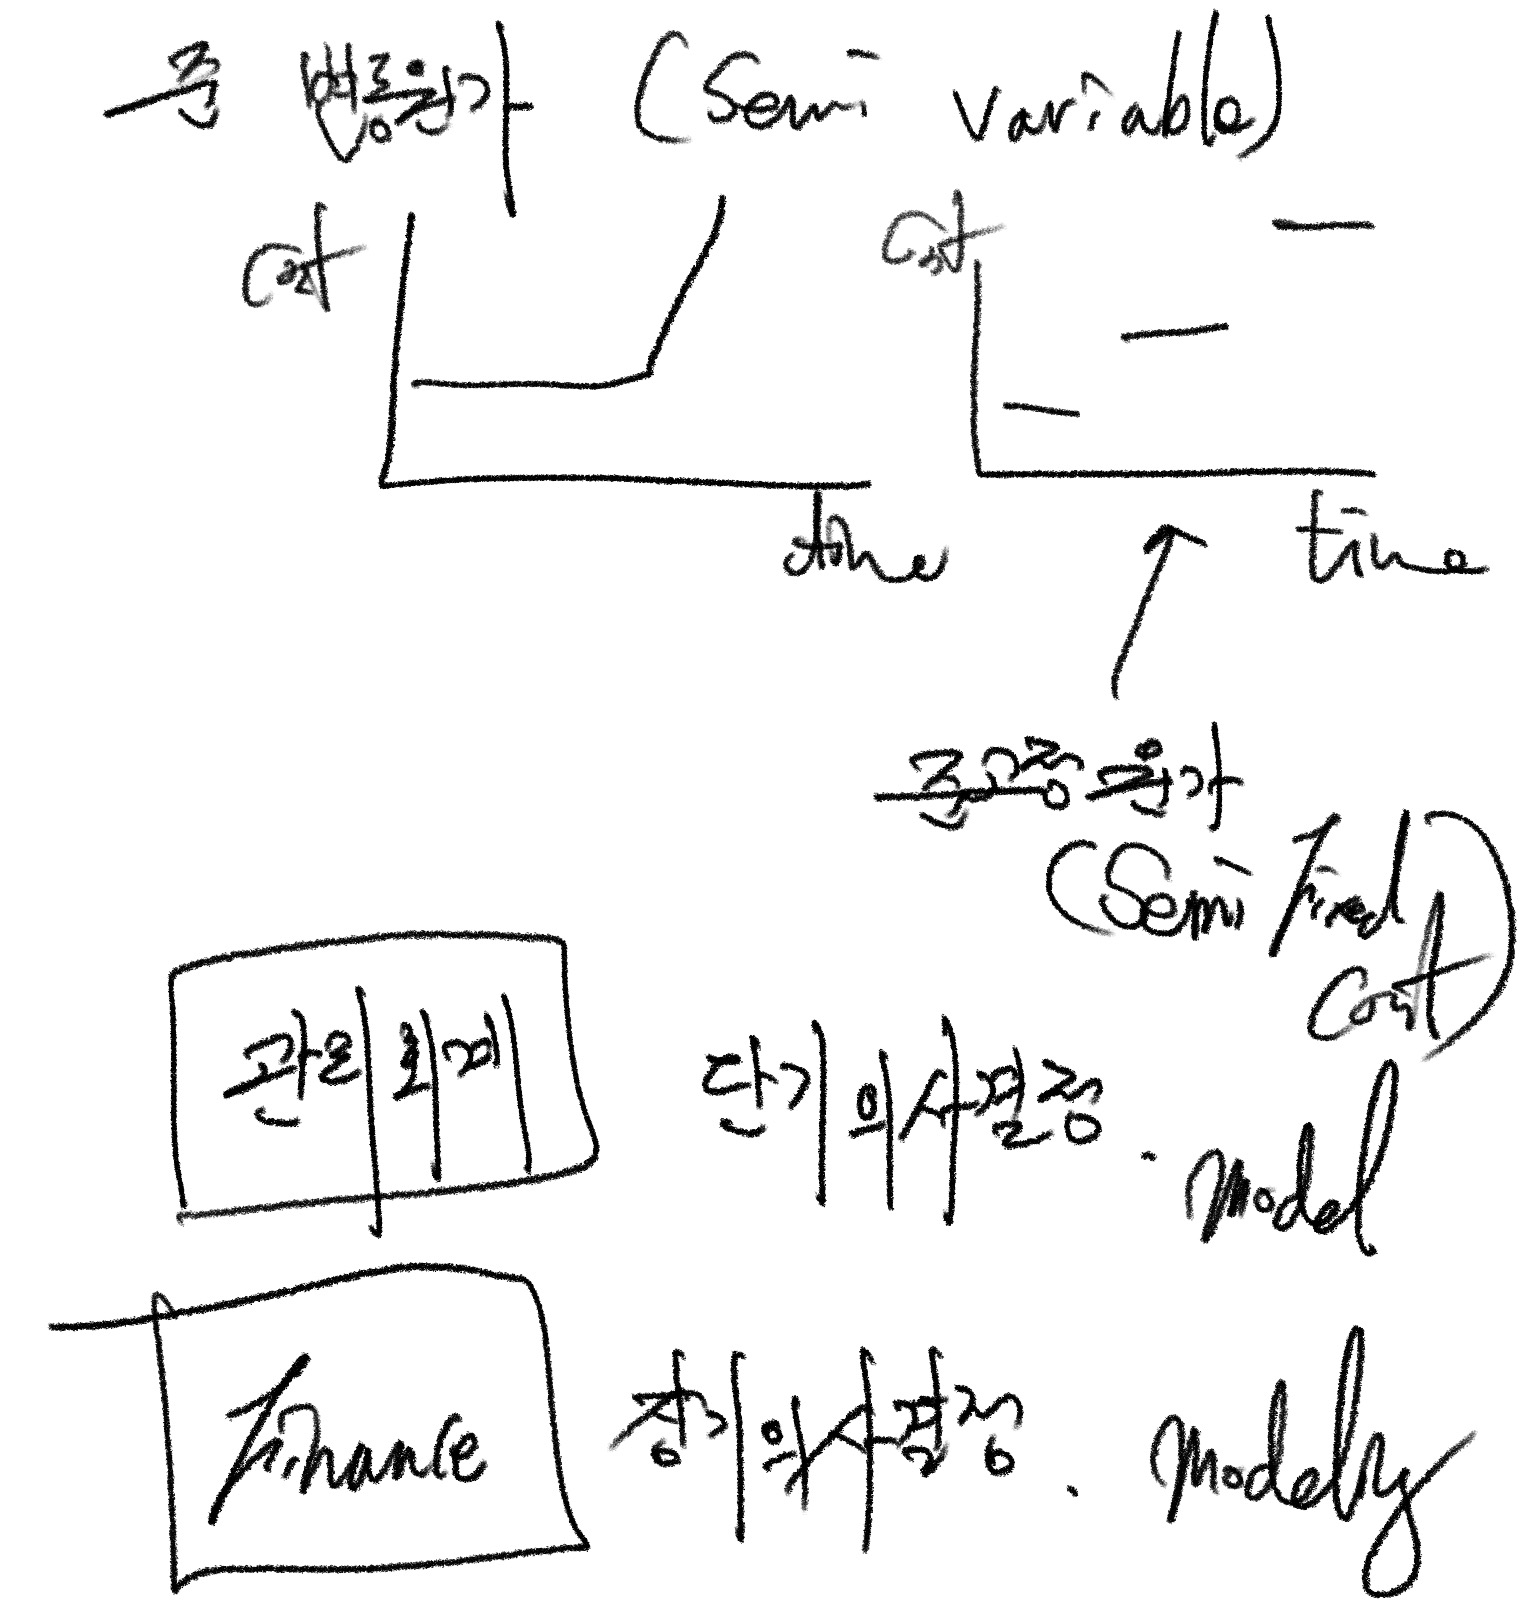 준 변동원가 (Semi variable)
Cost
Cost
time
time
준고정원가
(Semi Fixed
Cost)
관리회계 단기의사결정 . Model
Finance 장기의사결정 . Modeling